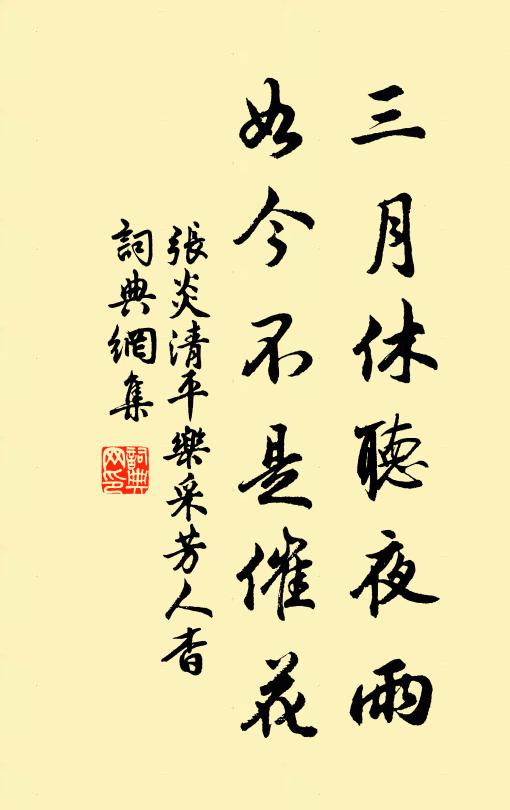 三月休聽夜雨
如今不是催花
張炎清平樂采芳人杳
詞典網集
詞典網印